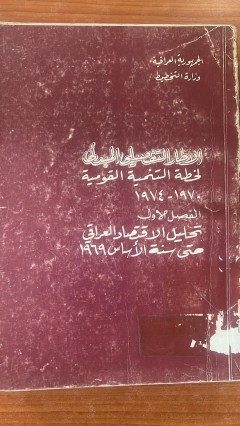 الجمهورية العراقية
وزارة التخطيط
الاطار التفصيلي المبدئي
لخطة التنمية القومية
١٩٧٠-١٩٧٤
الفصل الاول
تحليل الاقتصاد العراقي
حتى سنة الأساس ١٩٦٩